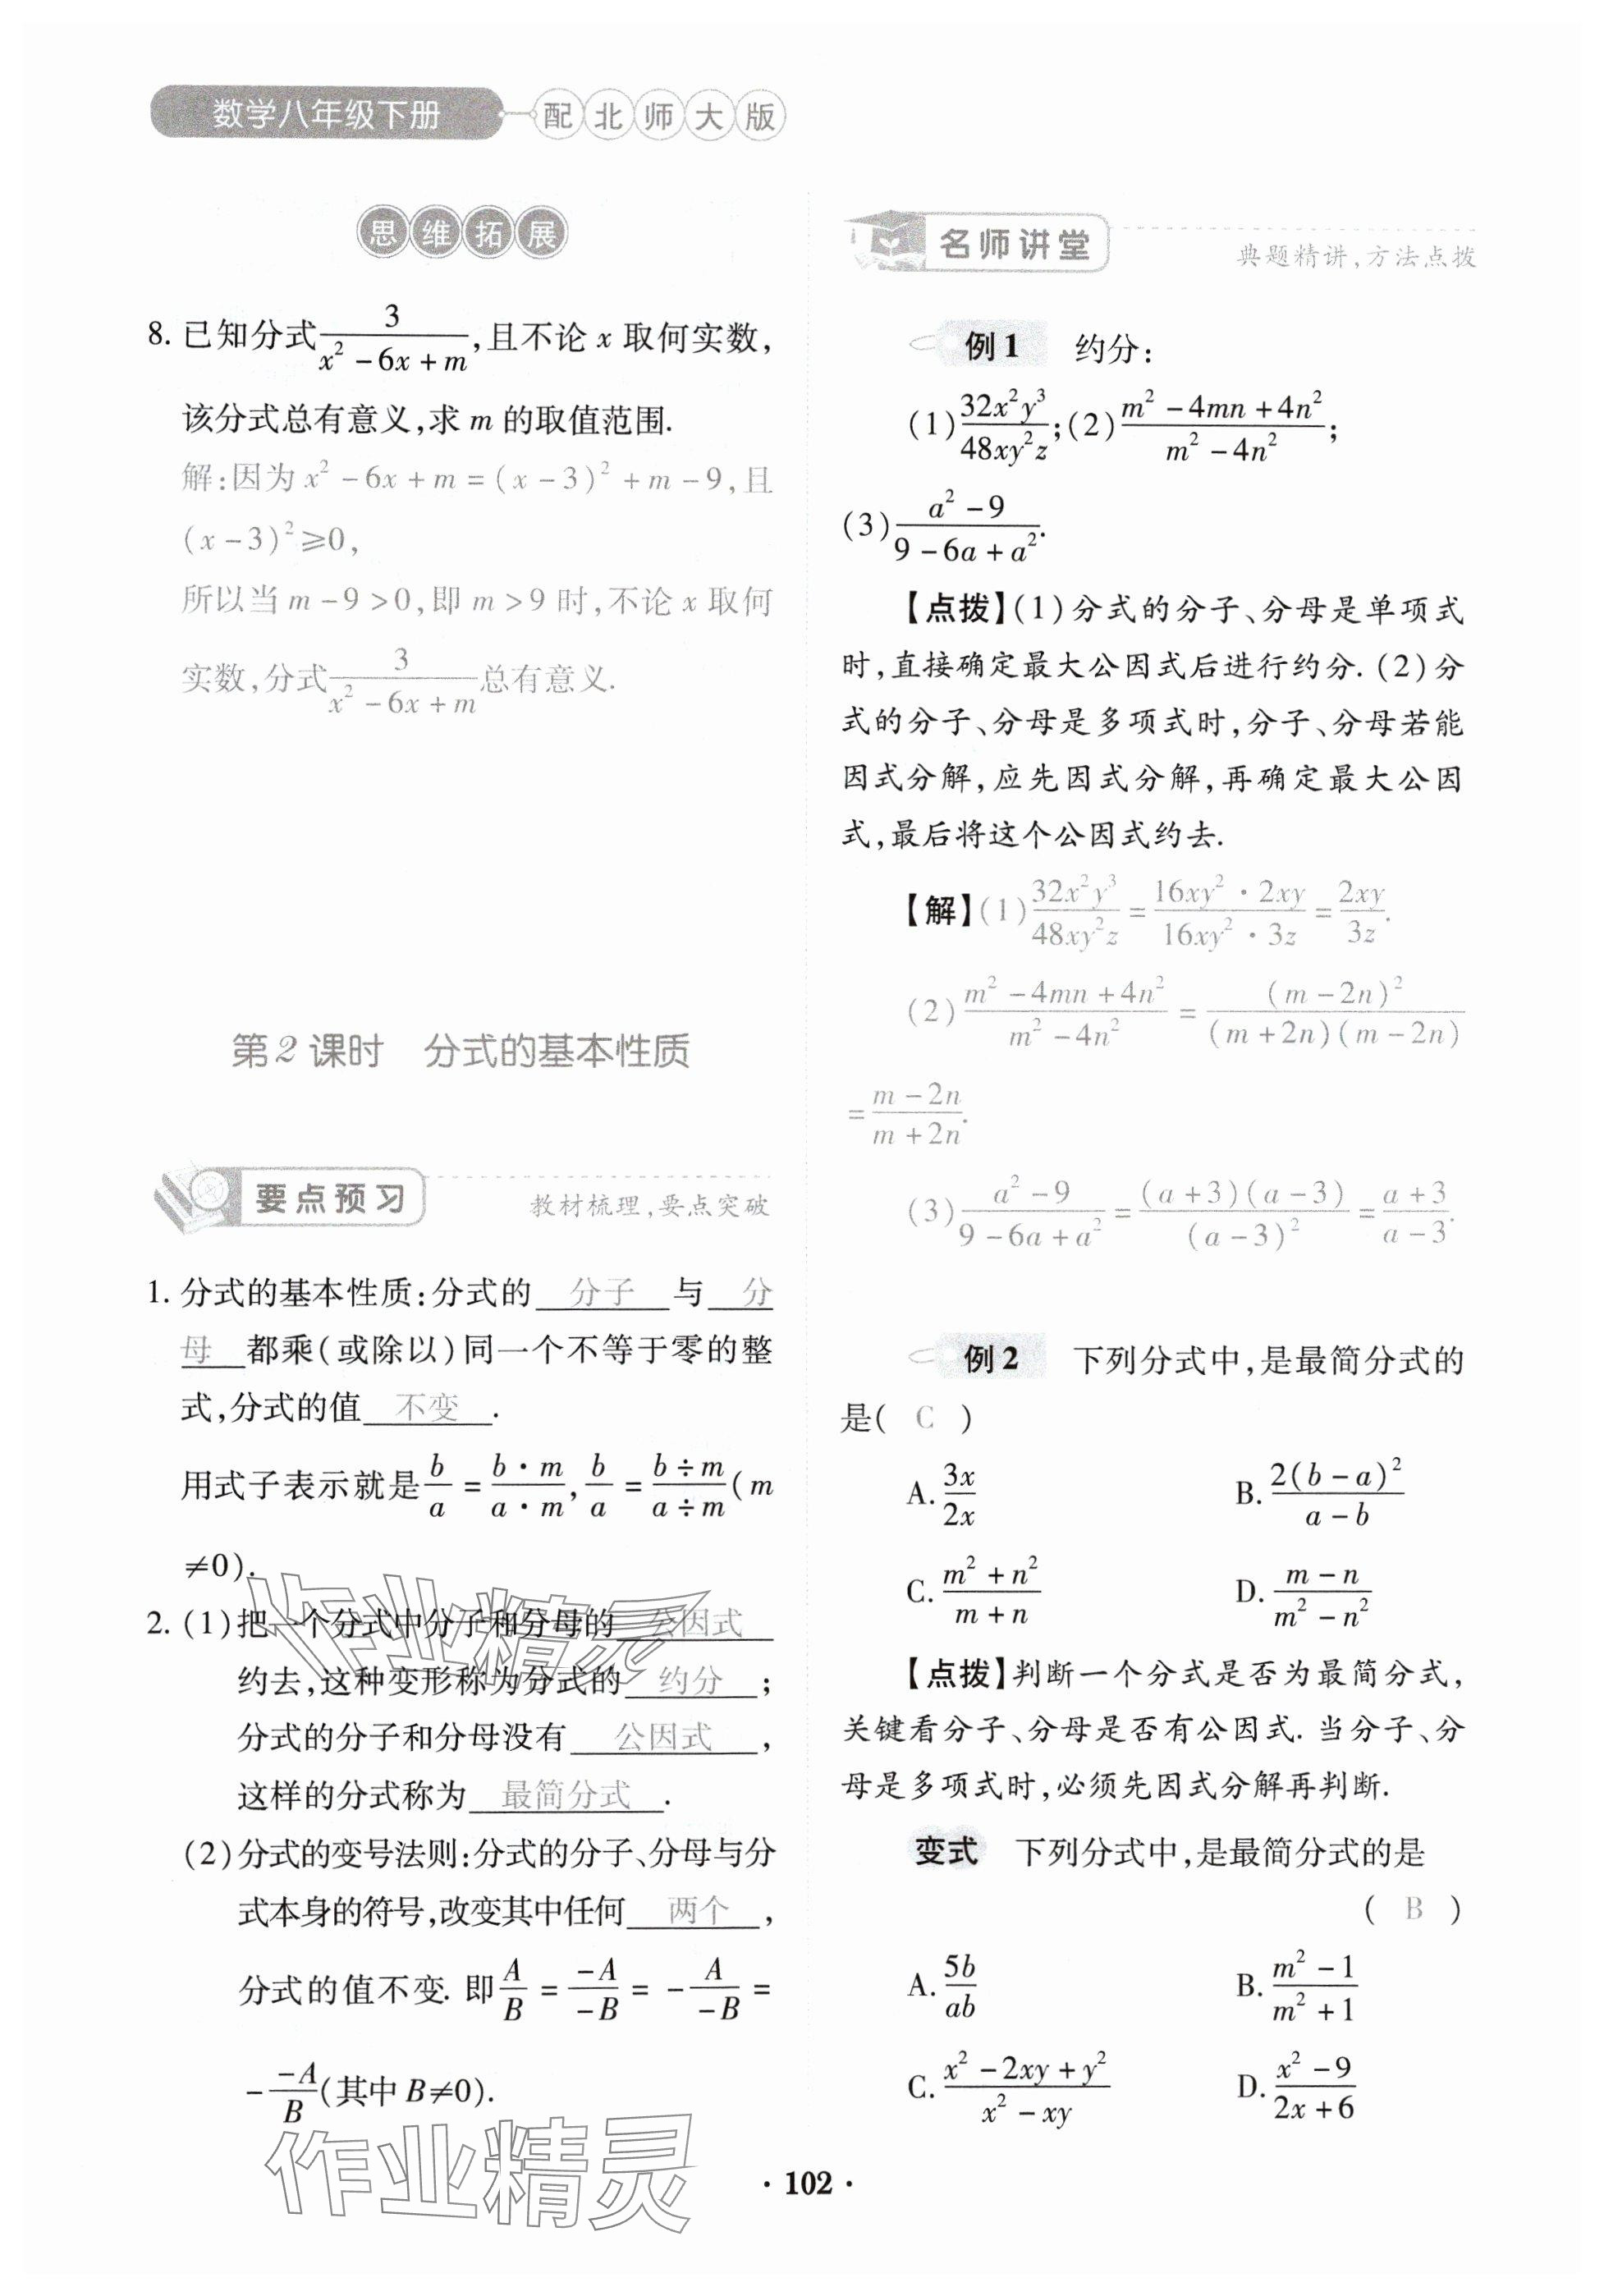 数学八年级下册 配北师大版
思维拓展
8. 已知分式 3/(x²-6x+m),且不论 x 取何实数,
该分式总有意义,求 m 的取值范围.
解:因为 x²-6x+m=(x-3)²+m-9,且
(x-3)²≥0,
所以当 m-9>0,即 m>9 时,不论 x 取何
实数,分式 3/(x²-6x+m) 总有意义.
第2课时 分式的基本性质
要点预习 教材梳理,要点突破
1. 分式的基本性质:分式的 分子 与 分
母 都乘(或除以)同一个不等于零的整
式,分式的值 不变 .
用式子表示就是 b/a = (b·m)/(a·m), b/a = (b÷m)/(a÷m) (m
≠0).
2. (1)把一个分式中分子和分母的 公因式
约去,这种变形称为分式的 约分 ;
分式的分子和分母没有 公因式 ,
这样的分式称为 最简分式 .
(2)分式的变号法则:分式的分子、分母与分
式本身的符号,改变其中任何 两个 ,
分式的值不变. 即 A/B = (-A)/(-B) = -A/(-B) =
-(-A)/B (其中 B≠0).
名师讲堂 典题精讲,方法点拨
例1 约分:
(1) 32x²y³/48xy²z ;(2) (m²-4mn+4n²)/(m²-4n²) ;
(3) (a²-9)/(9-6a+a²).
【点拨】(1)分式的分子、分母是单项式
时,直接确定最大公因式后进行约分. (2)分
式的分子、分母是多项式时,分子、分母若能
因式分解,应先因式分解,再确定最大公因
式,最后将这个公因式约去.
【解】(1) 32x²y³/48xy²z = (16xy²·2xy)/(16xy²·3z) = 2xy/3z.
(2) (m²-4mn+4n²)/(m²-4n²) = (m-2n)²/((m+2n)(m-2n))
= (m-2n)/(m+2n).
(3) (a²-9)/(9-6a+a²) = ((a+3)(a-3))/(a-3)² = (a+3)/(a-3).
例2 下列分式中,是最简分式的
是( C )
A. 3x/2x B. 2(b-a)²/(a-b)
C. (m²+n²)/(m+n) D. (m-n)/(m²-n²)
【点拨】判断一个分式是否为最简分式,
关键看分子、分母是否有公因式. 当分子、分
母是多项式时,必须先因式分解再判断.
变式 下列分式中,是最简分式的是
( B )
A. 5b/ab B. (m²-1)/(m²+1)
C. (x²-2xy+y²)/(x²-xy) D. (x²-9)/(2x+6)
作业精灵
作业精灵
· 102 ·